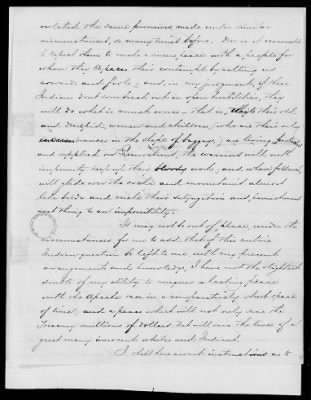 violated the same promises made under similar
circumstances, so many times before. Nor is it reasonable
to expect them to make a sincere peace with a people for
whom they express their contempt by calling us
cowards and fools; and, in my judgment, if these
Indians don't now break out in open hostilities, they
will do what is much worse. That is, while their old
and decrepid, women and children, who are their only
in the shape of baggage, are living,
and supplied on the Government, the warriors will with
impunity keep up their bloody work, and, when followed,
will glide over the rocks and mountains almost
like birds and make their subjugation and punishment
next thing to an impossibility.
It may not be out of place, under the
circumstances for me to add, that if this entire
Indian question be left to me with my present
arrangements and knowledge, I have not the slightest
doubt of my ability to conquer a lasting peace
with the Apache race in a comparatively short space
of time; and a peace which will not only save the
Treasury millions of dollars but will save the lives of a
great many innocent whites and Indians.
I still have such instructions as to